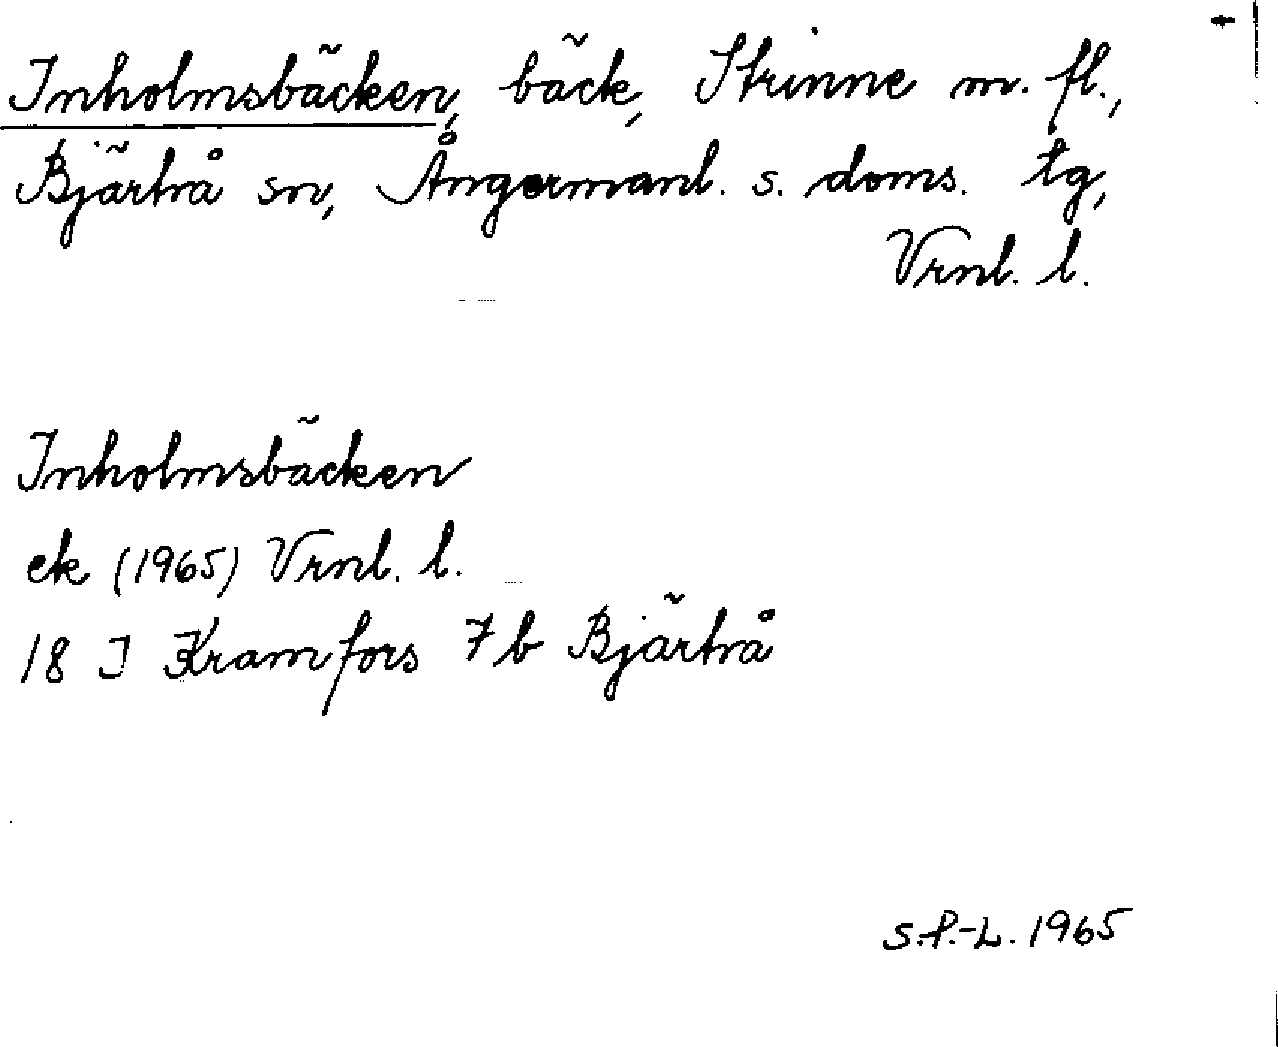 Inholmsbäcken, bäck, Strinne m. fl.,
Bjärtrå sn, Ångermanl. s. doms. tg,
Vrnl. l.
Inholmsbäcken
ek (1965) Vrnl. l.
18 I Kramfors 7b Bjärtrå
S.P.-L. 1965